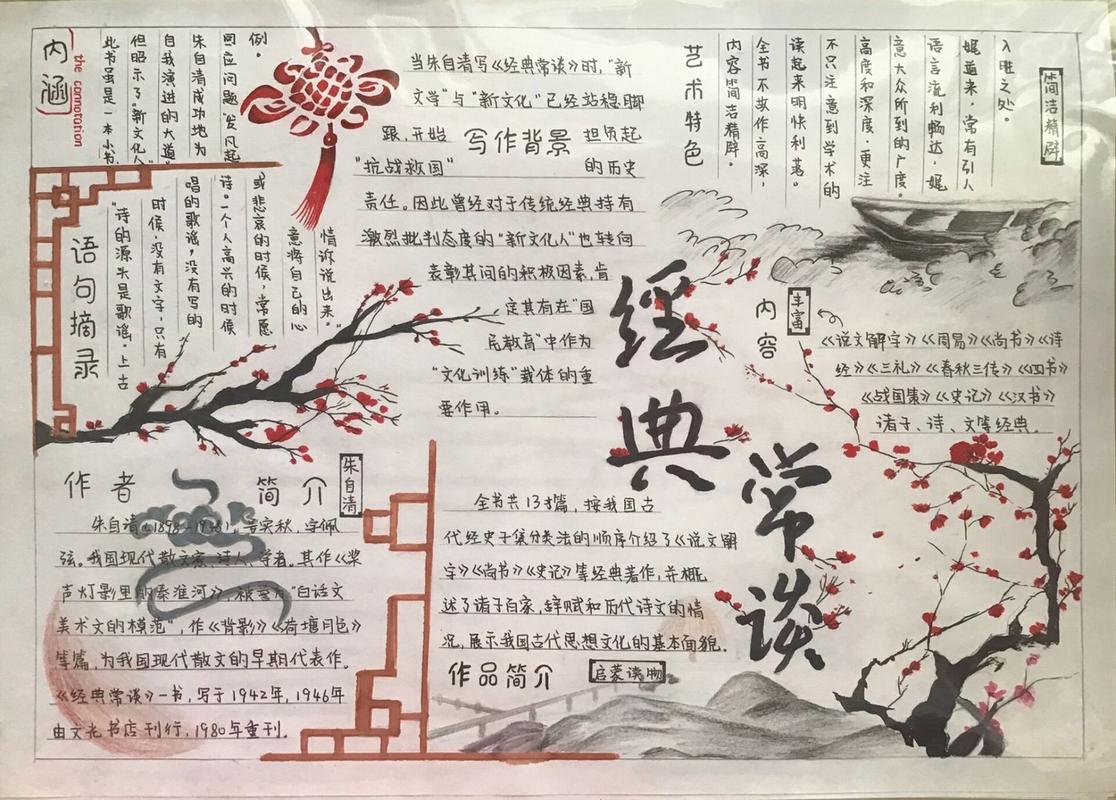 内涵
the connotation
此书虽是一本小书,
但昭示了“新文化人”
自我演进的大道
朱自清成功地为
回应问题“发凡起
例。
语句摘录
“诗的源头是歌谣。上古
时候,没有文字,只有
唱的歌谣,没有写的
诗。一个人高兴的时候
或悲哀的时候,常愿
意将自己的心
情诉说出来。”
当朱自清写《经典常谈》时,“新
文学”与“新文化”已经站稳脚
跟,开始 担负起
写作背景
“抗战救国” 的历史
责任。因此曾经对于传统经典持有
激烈批判态度的“新文化人”也转向
表彰其间的积极因素,肯
定其有在“国
民教育”中作为
“文化训练”载体的重
要作用。
艺术特色
内容简洁精辟。
全书不故作高深,
读起来明快利落。
不只注意到学术的
高度和深度,更注
意大众所到的广度。
语言流利畅达,娓
娓道来,常有引人
入胜之处。
简洁精辟
经典常谈
内容
丰富
《说文解字》《周易》《尚书》《诗
经》《三礼》《春秋三传》《四书》
《战国策》《史记》《汉书》
诸子、诗、文等经典。
作者简介
朱自清
朱自清(1898-1948),号实秋,字佩
弦。我国现代散文家,诗人,学者。其作《桨
声灯影里的秦淮河》,被誉为“白话文
美术文的模范”,作《背影》《荷塘月色》
等篇,为我国现代散文的早期代表作。
《经典常谈》一书,写于1942年,1946年
由文光书店刊行,1980年重刊。
全书共13篇,按我国古
代经史子集分类法的顺序介绍了《说文解
字》《尚书》《史记》等经典著作,并概
述了诸子百家,辞赋和历代诗文的情
况,展示我国古代思想文化的基本面貌。
作品简介
启蒙读物